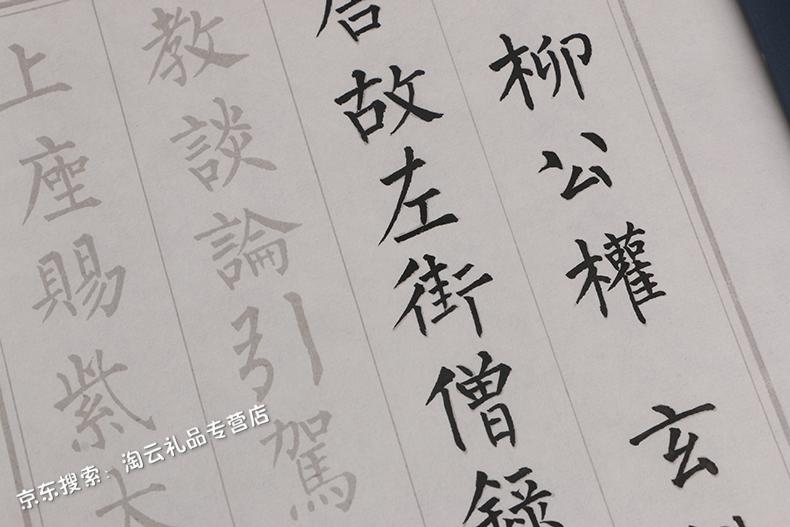 柳公權 玄
故左街僧録
教談論引駕
上座賜紫大
京东搜索：淘云礼品专营店